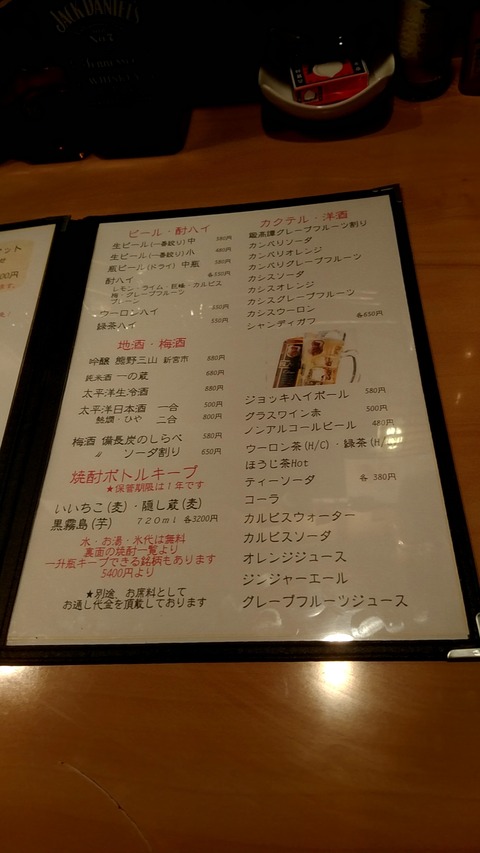 JACK DANIEL'S
WHISKEY
ビール・酎ハイ
生ビール(一番絞り)中 580円
生ビール(一番絞り)小 480円
瓶ビール(ドライ) 中瓶 580円
酎ハイ 各530円
レモン・ライム・巨峰・カルピス
梅・グレープフルーツ
プレーン
ウーロンハイ 530円
緑茶ハイ 530円
地酒・梅酒
吟醸 熊野三山 新宮市 880円
純米酒 一の蔵 680円
太平洋生冷酒 880円
太平洋日本酒 一合 500円
熱燗・ひや 二合 800円
梅酒 備長炭のしらべ 580円
〃 ソーダ割り 630円
焼酎ボトルキープ
★保管期限は1年です
いいちこ(麦)・隠し蔵(麦)
黒霧島(芋) 720ml 各3200円
水・お湯・氷代は無料
裏面の焼酎一覧より
一升瓶キープできる銘柄もあります
5400円より
★別途、お席料として
お通し代金を頂戴しております
カクテル・洋酒
鍛高譚グレープフルーツ割り
カンパリソーダ
カンパリオレンジ
カンパリグレープフルーツ
カシスソーダ
カシスオレンジ
カシスグレープフルーツ
カシスウーロン
シャンディガフ 各630円
ジョッキハイボール 580円
グラスワイン赤 500円
ノンアルコールビール 480円
ウーロン茶(H/C)・緑茶(H/
ほうじ茶Hot
ティーソーダ 各 380円
コーラ
カルピスウォーター
カルピスソーダ
オレンジジュース
ジンジャーエール
グレープフルーツジュース